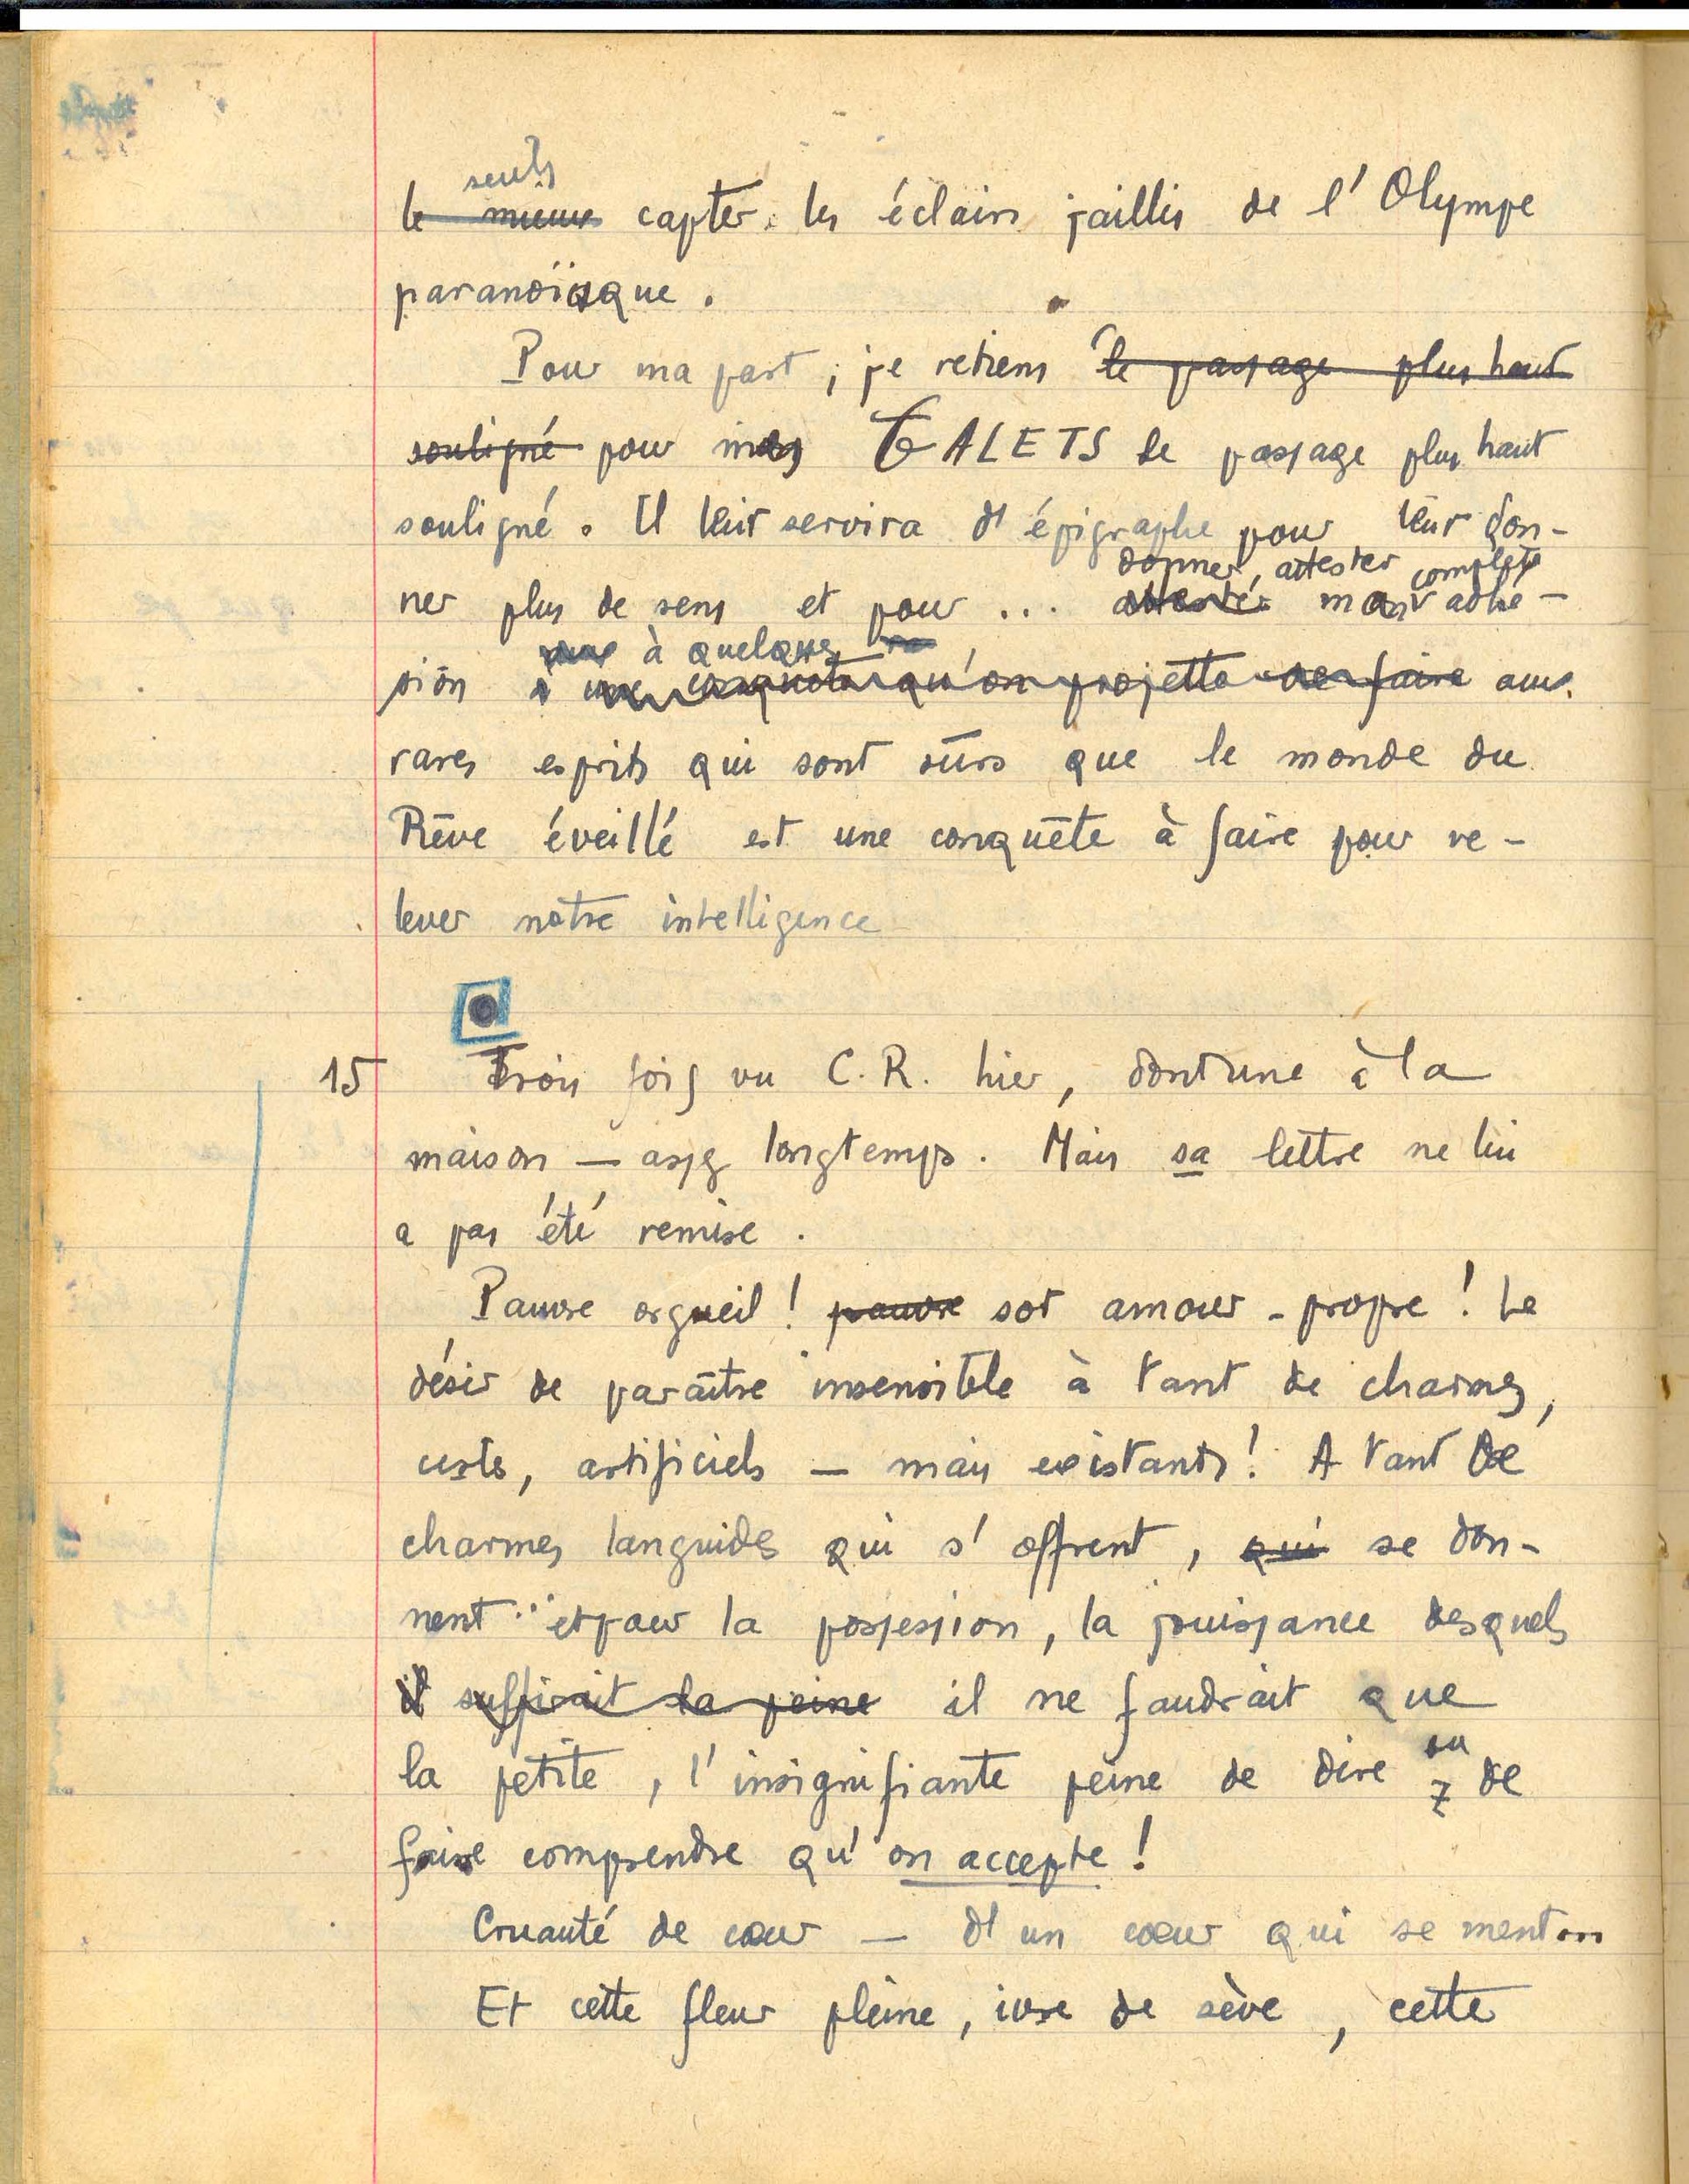 seuls
le mieux capter les éclairs jaillis de l'Olympe
paranoïaque.
Pour ma part, je retiens le passage plus haut
souligné pour mes GALETS le passage plus haut
souligné. Il leur servira d'épigraphe pour leur don-
donner, attester complète
ner plus de sens et pour ... attester mon adhé-
à quelques
sion à une conquête qu'on projette de faire aux
rares esprits qui sont sûrs que le monde du
Rêve éveillé est une conquête à faire pour re-
lever notre intelligence
15 Trois fois vu C.R. hier, dont une à la
maison — assez longtemps. Mais sa lettre ne lui
a pas été remise.
Pauvre orgueil ! pauvre sot amour-propre ! Le
désir de paraître insensible à tant de charmes,
certes, artificiels — mais existants ! A tant de
charmes languides qui s'offrent, qui se don-
nent... et pour la possession, la jouissance desquels
il suffirait la peine il ne faudrait que
ou
la petite, l'insignifiante peine de dire de
faire comprendre qu'on accepte !
Cruauté de cœur — d'un cœur qui se ment...
Et cette fleur pleine, ivre de sève, cette